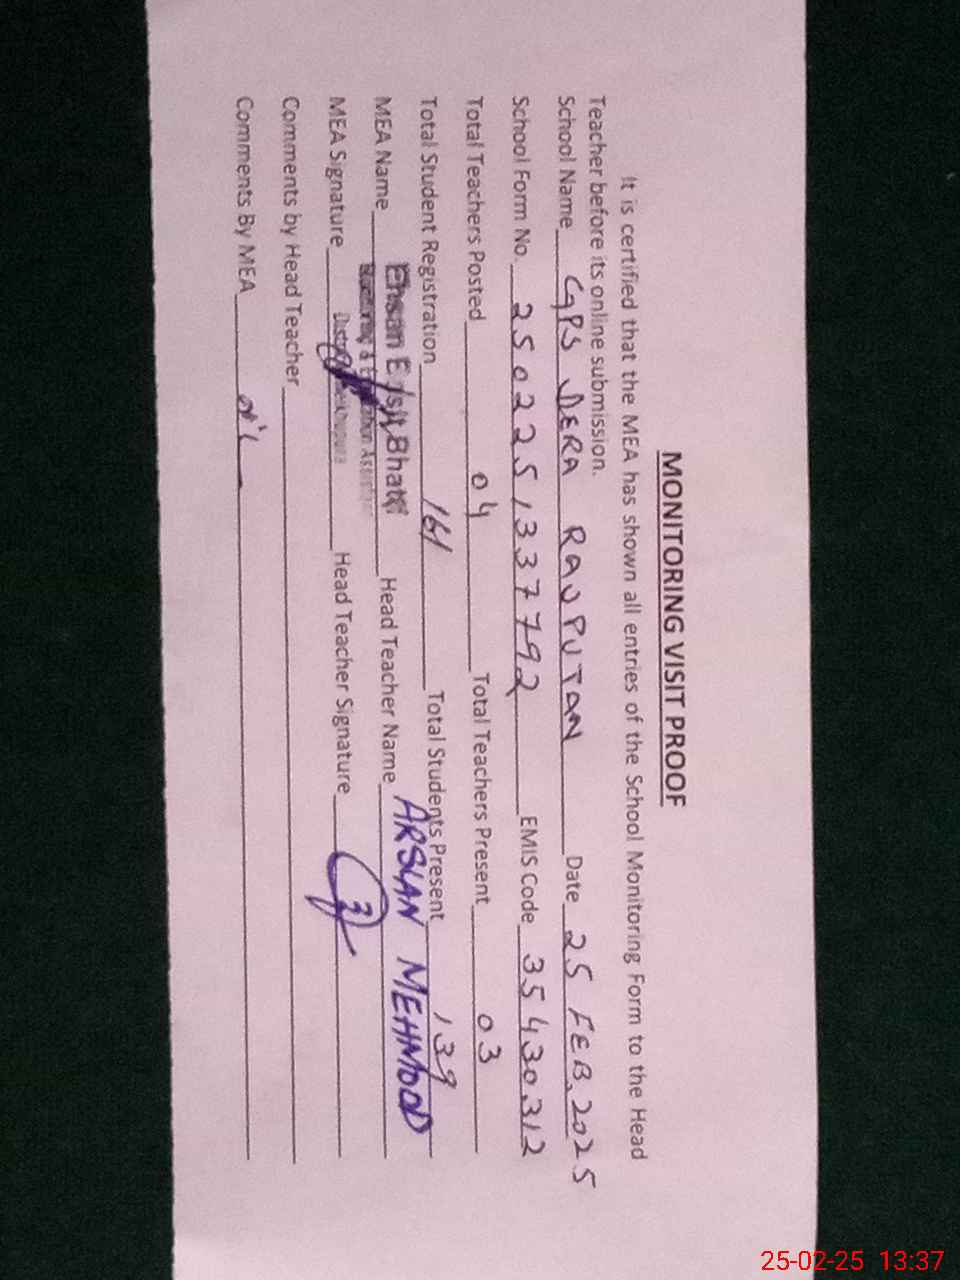 MONITORING VISIT PROOF
It is certified that the MEA has shown all entries of the School Monitoring Form to the Head
Teacher before its online submission.
School Name GPS DERA RAJPUTAN Date 25 FEB.2025
School Form No. 2502251337792 EMIS Code 35430312
Total Teachers Posted 04 Total Teachers Present 03
Total Student Registration 161 Total Students Present 139
MEA Name Ehsan Bhatti Head Teacher Name ARSLAN MEHMOOD
Monitoring &
MEA Signature Head Teacher Signature
Comments by Head Teacher
Comments By MEA
25-02-25 13:37